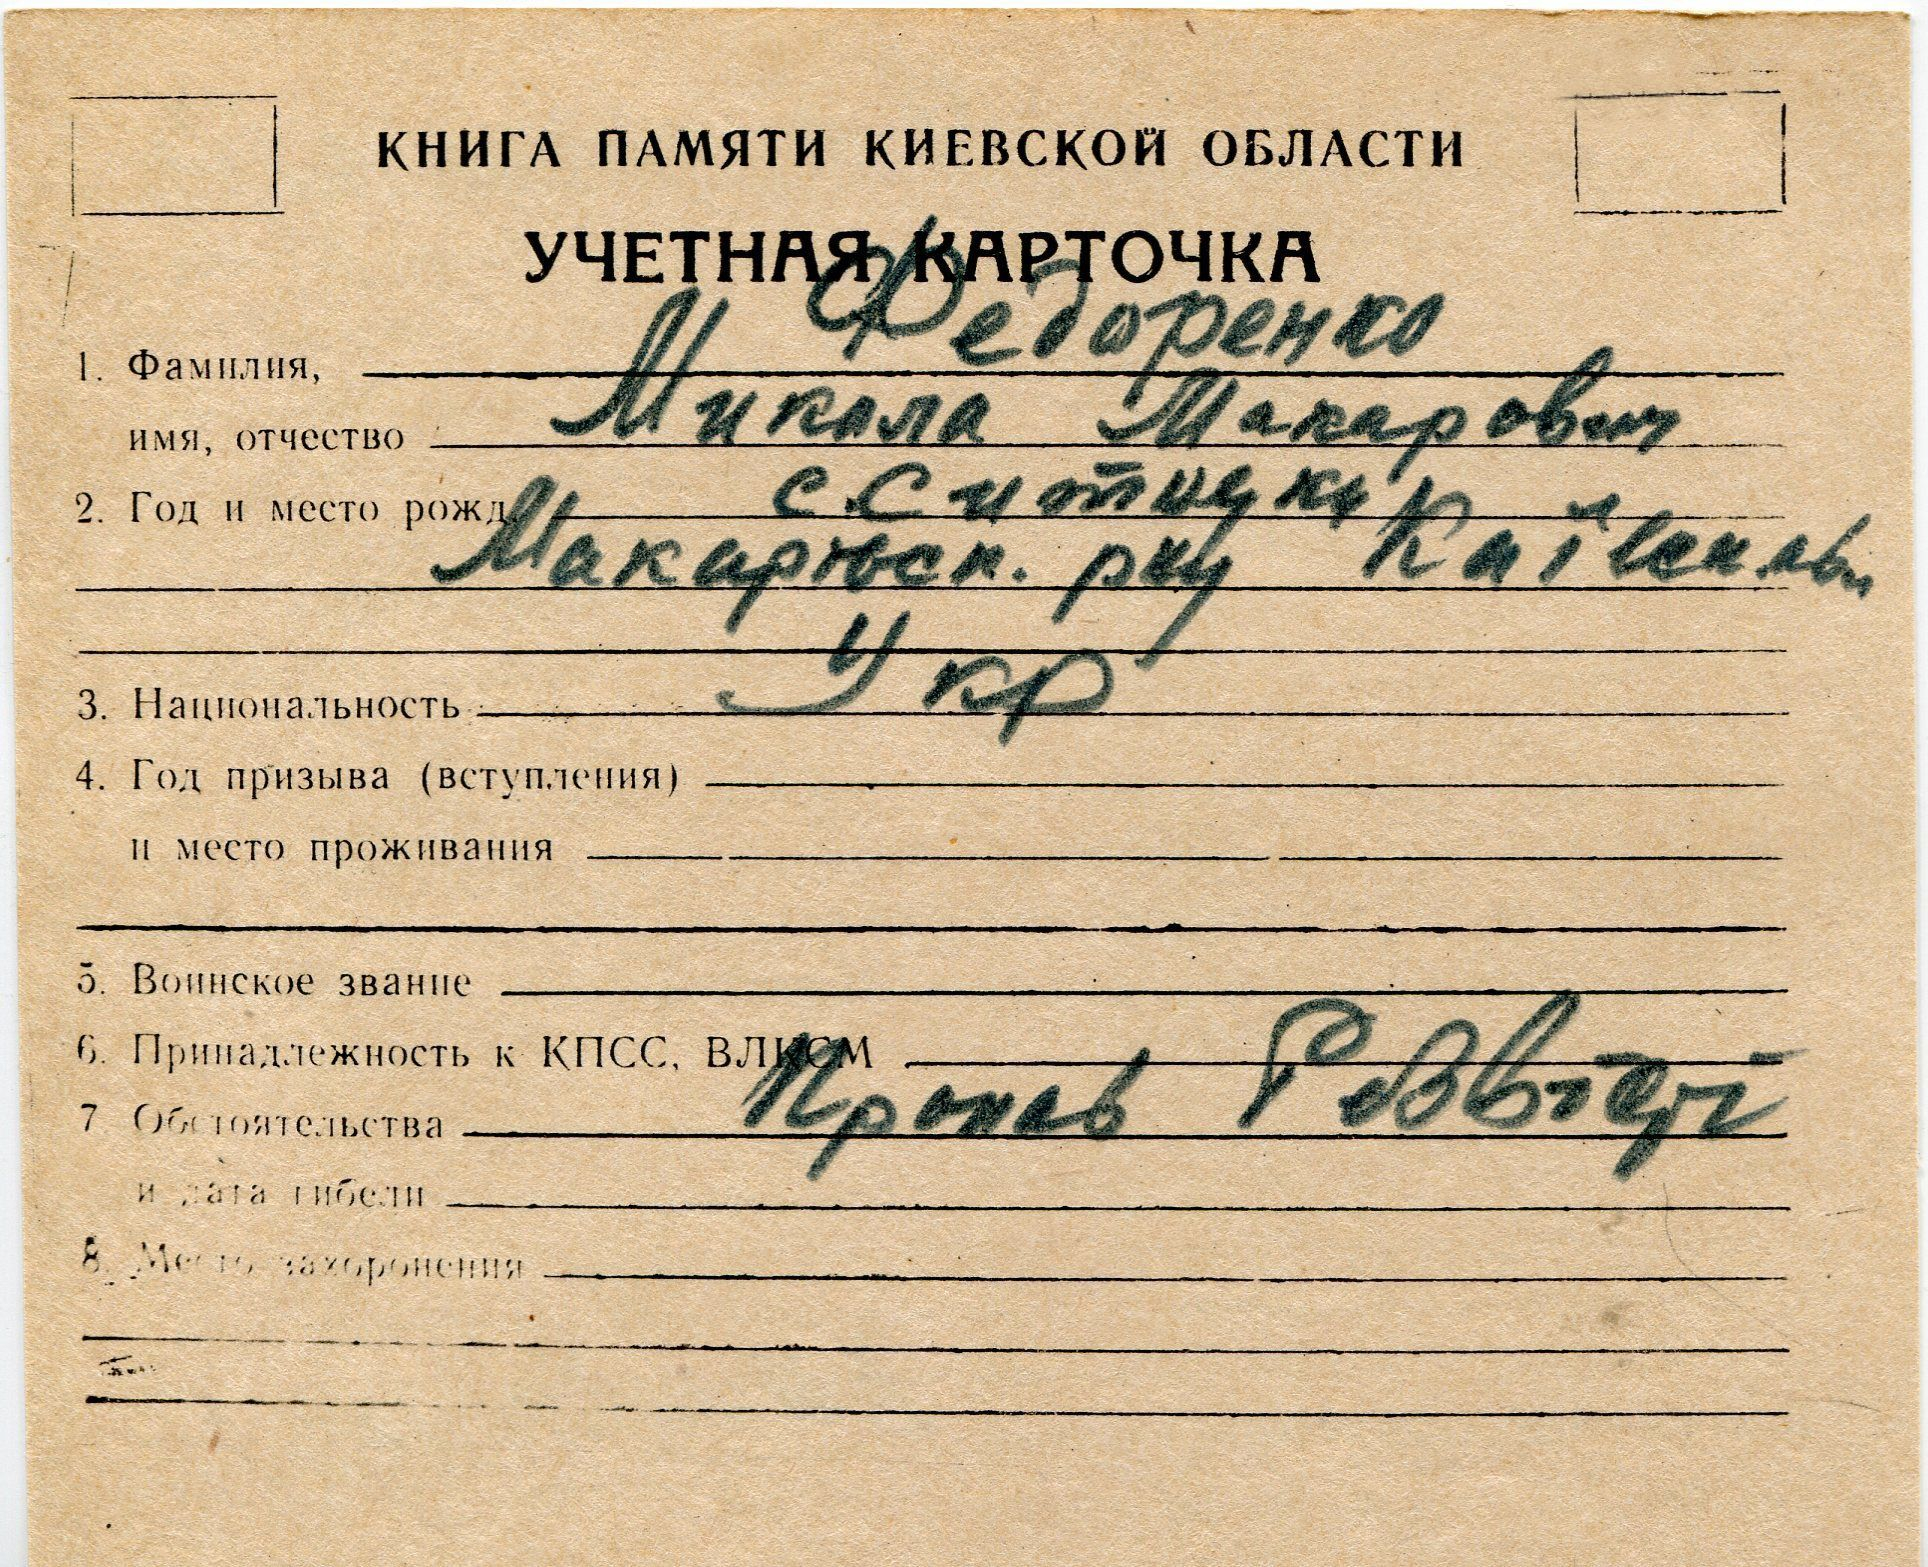 КНИГА ПАМЯТИ КИЕВСКОЙ ОБЛАСТИ
УЧЕТНАЯ КАРТОЧКА
1. Фамилия, Федоренко
имя, отчество Микола Макарович
2. Год и место рожд. с. Ситняки
Макарівск. рну
3. Национальность Укр
4. Год призыва (вступления)
и место проживания
5. Воинское звание
6. Принадлежность к КПСС, ВЛКСМ
7. Обстоятельства Пропав
и дата гибели
8. Место захоронения